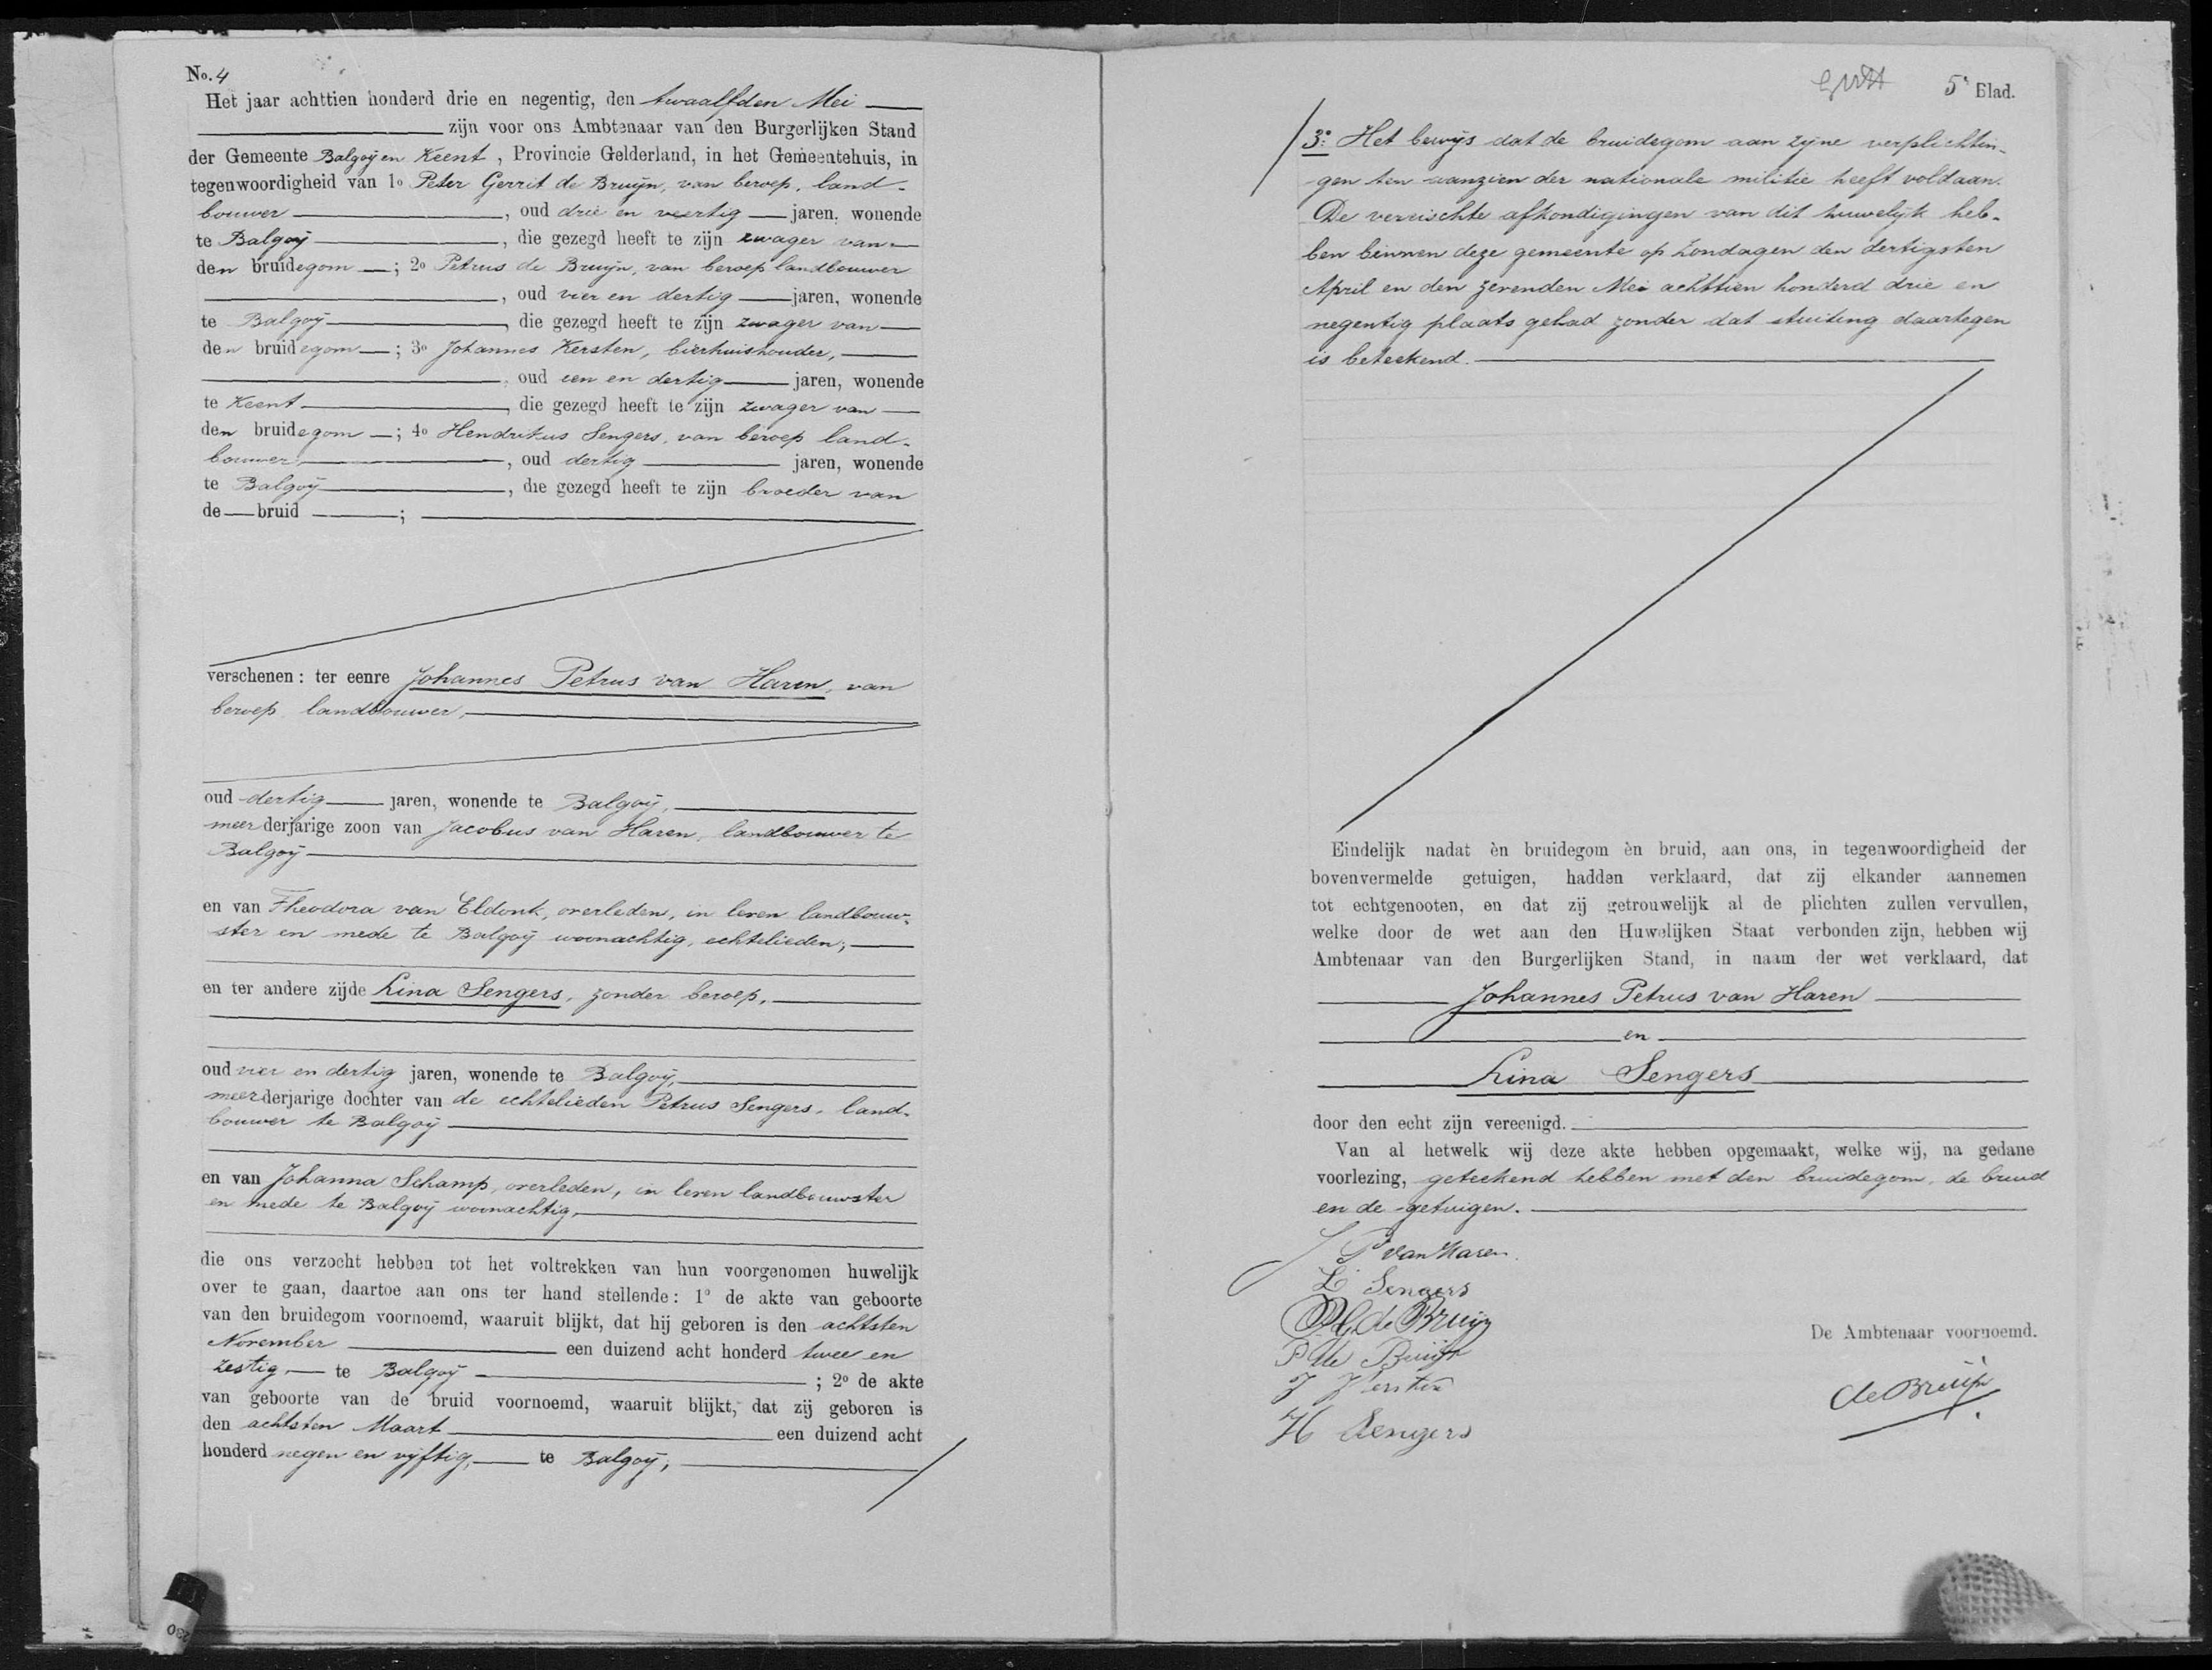 No. 4
Het jaar achttien honderd drie en negentig, den twaalfden Mei
zijn voor ons Ambtenaar van den Burgerlijken Stand
der Gemeente Balgoij en Keent, Provincie Gelderland, in het Gemeentehuis, in
tegenwoordigheid van 1o Peter Gerrit de Bruijn, van beroep, land-
bouwer, oud drie en veertig jaren, wonende
te Balgoij, die gezegd heeft te zijn zwager van
den bruidegom; 2o Petrus de Bruijn, van beroep landbouwer
, oud vier en dertig jaren, wonende
te Balgoij, die gezegd heeft te zijn zwager van
den bruidegom; 3o Johannes Kersten, bierhuishouder,
, oud een en dertig jaren, wonende
te Keent, die gezegd heeft te zijn zwager van
den bruidegom; 4o Hendrikus Sengers, van beroep land-
bouwer, oud dertig jaren, wonende
te Balgoij, die gezegd heeft te zijn broeder van
de bruid ;
verschenen: ter eenre Johannes Petrus van Haren, van
beroep landbouwer,
oud dertig jaren, wonende te Balgoij,
meerderjarige zoon van Jacobus van Haren, landbouwer te
Balgoij
en van Theodora van Eldonk, overleden, in leven landbouw-
ster en mede te Balgoij woonachtig, echtelieden;
en ter andere zijde Lina Sengers, zonder beroep,
oud vier en dertig jaren, wonende te Balgoij,
meerderjarige dochter van de echtelieden Petrus Sengers, land-
bouwer te Balgoij
en van Johanna Schamp, overleden, in leven landbouwster
en mede te Balgoij woonachtig,
die ons verzocht hebben tot het voltrekken van hun voorgenomen huwelijk
over te gaan, daartoe aan ons ter hand stellende: 1o de akte van geboorte
van den bruidegom voornoemd, waaruit blijkt, dat hij geboren is den achtsten
November een duizend acht honderd twee en
zestig, te Balgoij ; 2o de akte
van geboorte van de bruid voornoemd, waaruit blijkt, dat zij geboren is
den achtsten Maart een duizend acht
honderd negen en vijftig, te Balgoij,
5e Blad.
3o. Het bewijs dat de bruidegom aan zijne verplichtin-
gen ten aanzien der nationale militie heeft voldaan.
De vereischte afkondigingen van dit huwelijk heb-
ben binnen deze gemeente op Zondagen den dertigsten
April en den zevenden Mei achttien honderd drie en
negentig plaats gehad zonder dat stuiting daartegen
is beteekend.
Eindelijk nadat èn bruidegom èn bruid, aan ons, in tegenwoordigheid der
bovenvermelde getuigen, hadden verklaard, dat zij elkander aannemen
tot echtgenooten, en dat zij getrouwelijk al de plichten zullen vervullen,
welke door de wet aan den Huwelijken Staat verbonden zijn, hebben wij
Ambtenaar van den Burgerlijken Stand, in naam der wet verklaard, dat
Johannes Petrus van Haren
en
Lina Sengers
door den echt zijn vereenigd.
Van al hetwelk wij deze akte hebben opgemaakt, welke wij, na gedane
voorlezing, geteekend hebben met den bruidegom, de bruid
en de getuigen.
J P van Haren.
L Sengers
P G de Bruijn
P de Bruijn
J Kersten
H Sengers
De Ambtenaar voornoemd.
de Bruijn
230